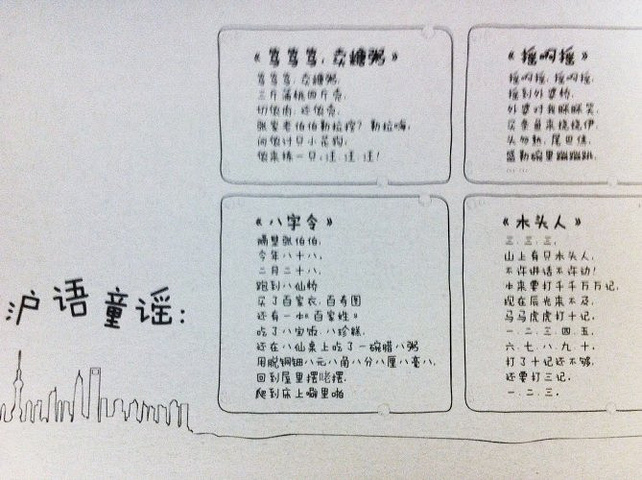 《笃笃笃，卖糖粥》
笃笃笃，卖糖粥，
三斤蒲桃四斤壳，
张家老伯伯勒拉𠲎？勒拉嗨，
问侬讨只小花狗，
侬来拣一只，汪、汪、汪！
《摇啊摇》
摇啊摇，摇啊摇，
摇到外婆桥，
外婆对我眯眯笑，
买条鱼来烧烧伊，
头勿熟，尾巴焦，
盛勒碗里蹦蹦跳，
……
《八字令》
隔壁张伯伯，
今年八十八，
二月二十八，
跑到八仙桥
买了百家衣，百寿图
还有一本《百家姓》
吃了八宝饭，八珍糕，
还在八仙桌上吃了一碗腊八粥
用脱铜钿八元八角八分八厘八毫八，
回到屋里摆咾摆，
爬到床上噼里啪
《木头人》
三、三、三，
山上有只木头人，
不许讲话不许动！
本来要打千千万万记，
现在辰光来不及，
马马虎虎打十记，
一、二、三、四、五，
六、七、八、九、十，
打了十记还不够，
还要打三记，
一、二、三，
沪语童谣：